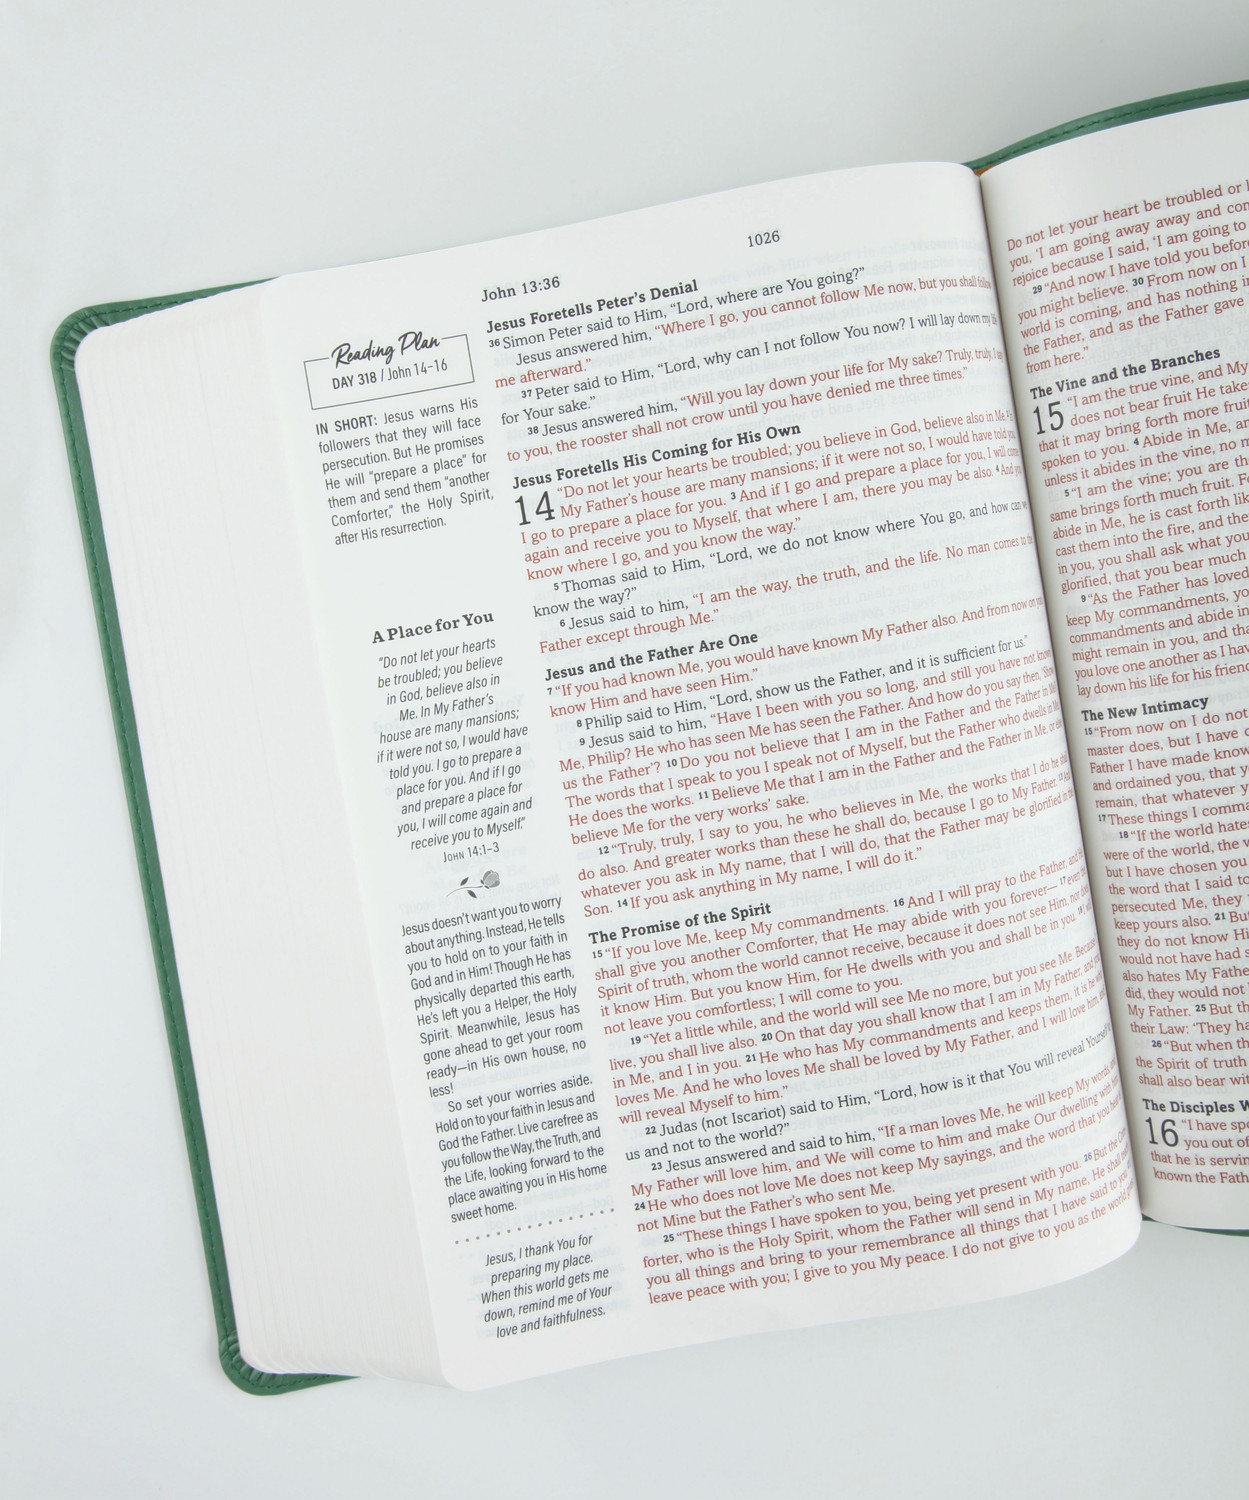 1026
John 13:36
Reading Plan
DAY 318 / John 14–16
IN SHORT: Jesus warns His
followers that they will face
persecution. But He promises
He will “prepare a place” for
them and send them “another
Comforter,” the Holy Spirit,
after His resurrection.
A Place for You
“Do not let your hearts
be troubled; you believe
in God, believe also in
Me. In My Father’s
house are many mansions;
if it were not so, I would have
told you. I go to prepare a
place for you. And if I go
and prepare a place for
you, I will come again and
receive you to Myself.”
JOHN 14:1–3
Jesus doesn’t want you to worry
about anything. Instead, He tells
you to hold on to your faith in
God and in Him! Though He has
physically departed this earth,
He’s left you a Helper, the Holy
Spirit. Meanwhile, Jesus has
gone ahead to get your room
ready—in His own house, no
less!
So set your worries aside.
Hold on to your faith in Jesus and
God the Father. Live carefree as
you follow the Way, the Truth, and
the Life, looking forward to the
place awaiting you in His home
sweet home.
Jesus, I thank You for
preparing my place.
When this world gets me
down, remind me of Your
love and faithfulness.
Jesus Foretells Peter’s Denial
36 Simon Peter said to Him, “Lord, where are You going?”
Jesus answered him, “Where I go, you cannot follow Me now, but you shall follow
me afterward.”
37 Peter said to Him, “Lord, why can I not follow You now? I will lay down my life
for Your sake.”
38 Jesus answered him, “Will you lay down your life for My sake? Truly, truly, I say
to you, the rooster shall not crow until you have denied me three times.”
Jesus Foretells His Coming for His Own
14 “Do not let your hearts be troubled; you believe in God, believe also in Me. 2
My Father’s house are many mansions; if it were not so, I would have told you.
I go to prepare a place for you. 3 And if I go and prepare a place for you, I will come
again and receive you to Myself, that where I am, there you may be also. 4 And you
know where I go, and you know the way.”
5 Thomas said to Him, “Lord, we do not know where You go, and how can we
know the way?”
6 Jesus said to him, “I am the way, the truth, and the life. No man comes to the
Father except through Me.”
Jesus and the Father Are One
7 “If you had known Me, you would have known My Father also. And from now on you
know Him and have seen Him.”
8 Philip said to Him, “Lord, show us the Father, and it is sufficient for us.”
9 Jesus said to him, “Have I been with you so long, and still you have not known
Me, Philip? He who has seen Me has seen the Father. And how do you say then, ‘Show
us the Father’? 10 Do you not believe that I am in the Father and the Father in Me?
The words that I speak to you I speak not of Myself, but the Father who dwells in Me
He does the works. 11 Believe Me that I am in the Father and the Father in Me, or else
believe Me for the very works’ sake.
12 “Truly, truly, I say to you, he who believes in Me, the works that I do he shall
do also. And greater works than these he shall do, because I go to My Father. 13 And
whatever you ask in My name, that I will do, that the Father may be glorified in the
Son. 14 If you ask anything in My name, I will do it.”
The Promise of the Spirit
15 “If you love Me, keep My commandments. 16 And I will pray to the Father, and He
shall give you another Comforter, that He may abide with you forever— 17 even the
Spirit of truth, whom the world cannot receive, because it does not see Him, nor does
it know Him. But you know Him, for He dwells with you and shall be in you. 18 I will
not leave you comfortless; I will come to you.
19 “Yet a little while, and the world will see Me no more, but you see Me. Because
live, you shall live also. 20 On that day you shall know that I am in My Father, and you
in Me, and I in you. 21 He who has My commandments and keeps them, it is he who
loves Me. And he who loves Me shall be loved by My Father, and I will love him, and
will reveal Myself to him.”
22 Judas (not Iscariot) said to Him, “Lord, how is it that You will reveal Yourself
us and not to the world?”
23 Jesus answered and said to him, “If a man loves Me, he will keep My words and
My Father will love him, and We will come to him and make Our dwelling with him.
24 He who does not love Me does not keep My sayings, and the word that you hear
not Mine but the Father’s who sent Me.
25 “These things I have spoken to you, being yet present with you. 26 But the
forter, who is the Holy Spirit, whom the Father will send in My name, He shall teach
you all things and bring to your remembrance all things that I have said to you.
leave peace with you; I give to you My peace. I do not give to you as the world
Do not let your heart be troubled or
you, ‘I am going away away and con
rejoice because I said, ‘I am going to
29 “And now I have told you before
you might believe. 30 From now on I
world is coming, and has nothing in
the Father, and as the Father gave
from here.”
The Vine and the Branches
15 “I am the true vine, and My
does not bear fruit He take
that it may bring forth more fruit
spoken to you. 4 Abide in Me, an
unless it abides in the vine, no m
5 “I am the vine; you are th
same brings forth much fruit. Fo
abide in Me, he is cast forth lik
cast them into the fire, and the
in you, you shall ask what you
glorified, that you bear much
9 “As the Father has loved
keep My commandments, yo
commandments and abide in
might remain in you, and tha
you love one another as I hav
lay down his life for his friend
The New Intimacy
15 “From now on I do not
master does, but I have c
Father I have made know
and ordained you, that y
remain, that whatever y
17 These things I comma
18 “If the world hates
were of the world, the w
but I have chosen you
the word that I said to
persecuted Me, they
keep yours also. 21 But
they do not know Hi
would not have had s
also hates My Father
did, they would not
My Father. 25 But th
their Law: ‘They ha
26 “But when th
the Spirit of truth
shall also bear wit
The Disciples W
16 “I have spo
you out of
that he is servin
known the Fath